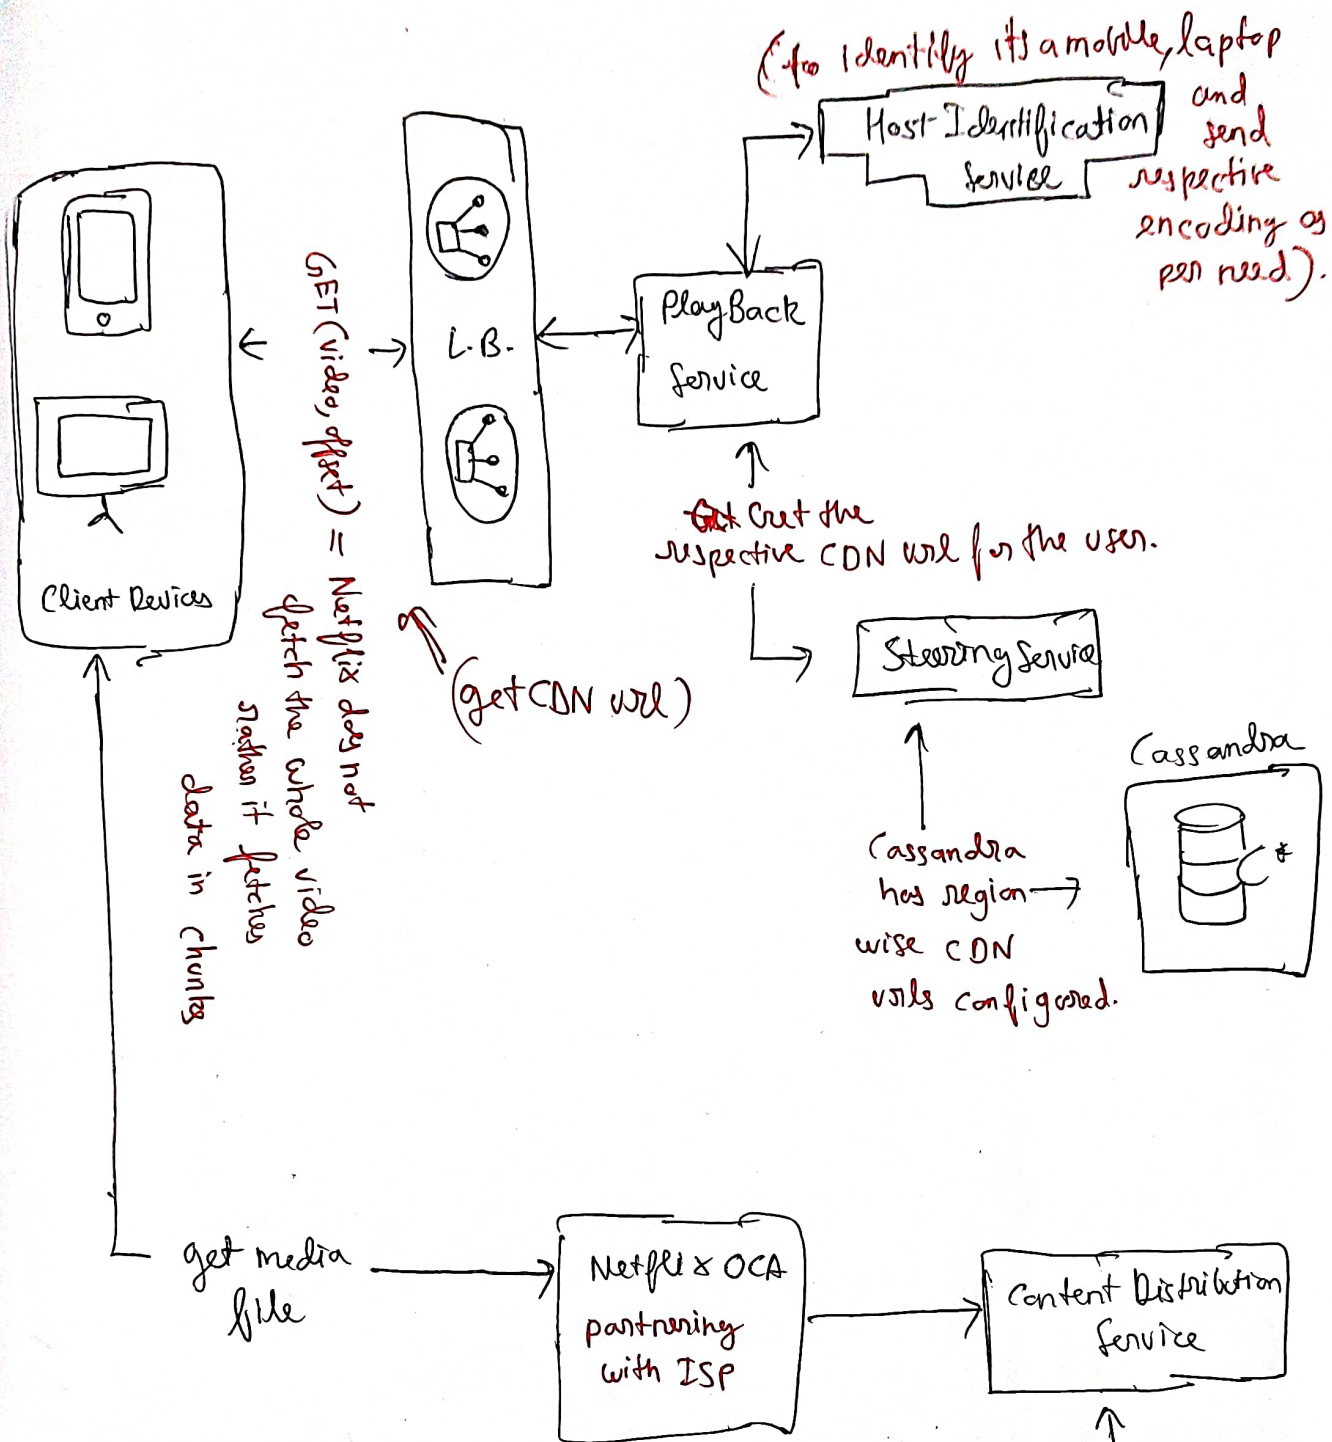 (to identify its a mobile, laptop
and
send
respective
encoding as
per need).
Host-Identification
Service
PlayBack
Service
L.B.
GET(video, offset) = Netflix does not
fetch the whole video
rather it fetches
data in chunks
Client Devices
Get the
respective CDN url for the user.
(get CDN url)
Steering Service
Cassandra
Cassandra
has region
wise CDN
urls configured.
get media
file
Netflix OCA
partnering
with ISP
Content Distribution
Service